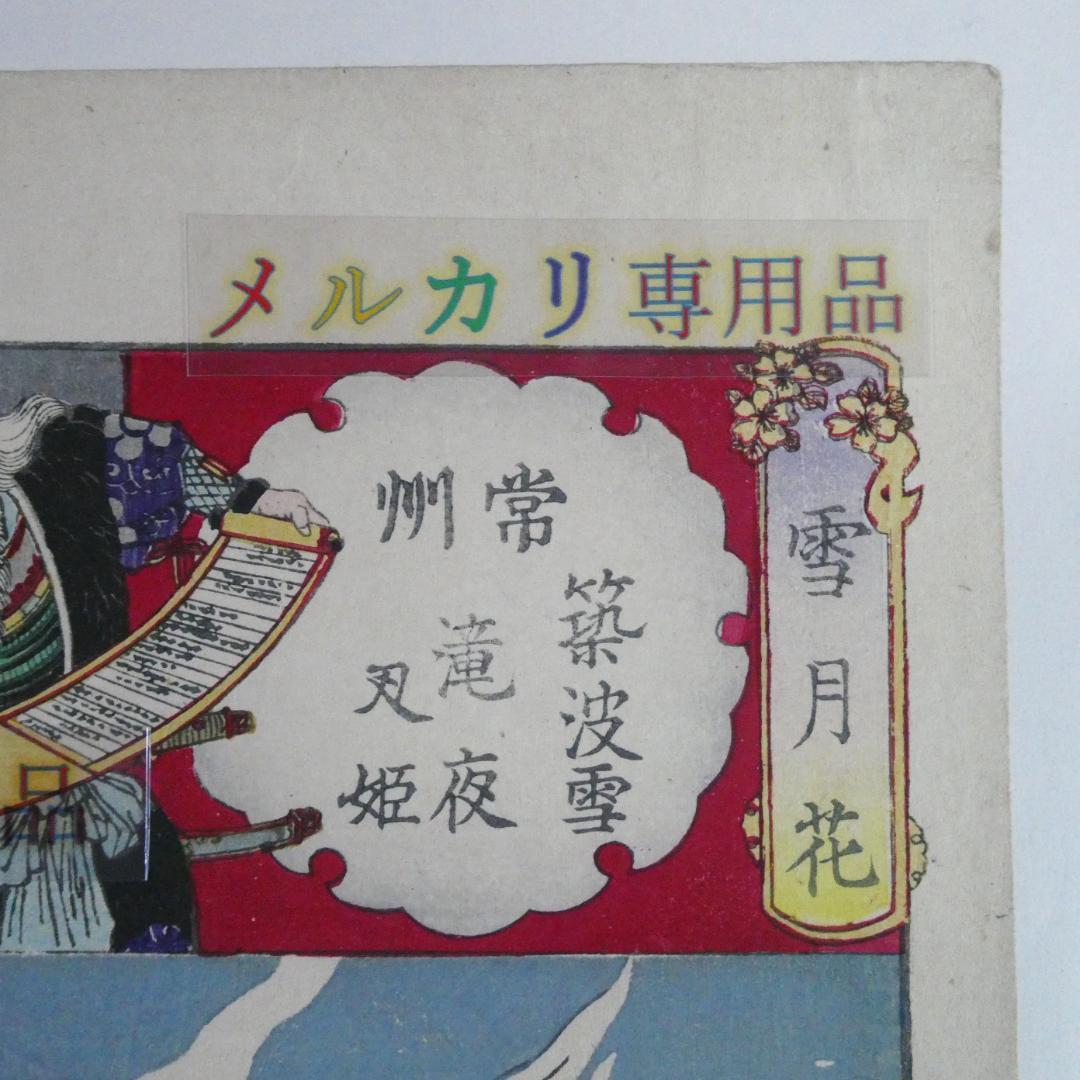 メルカリ専用品
雪月花
常州
築波雪
滝夜
叉姫
品